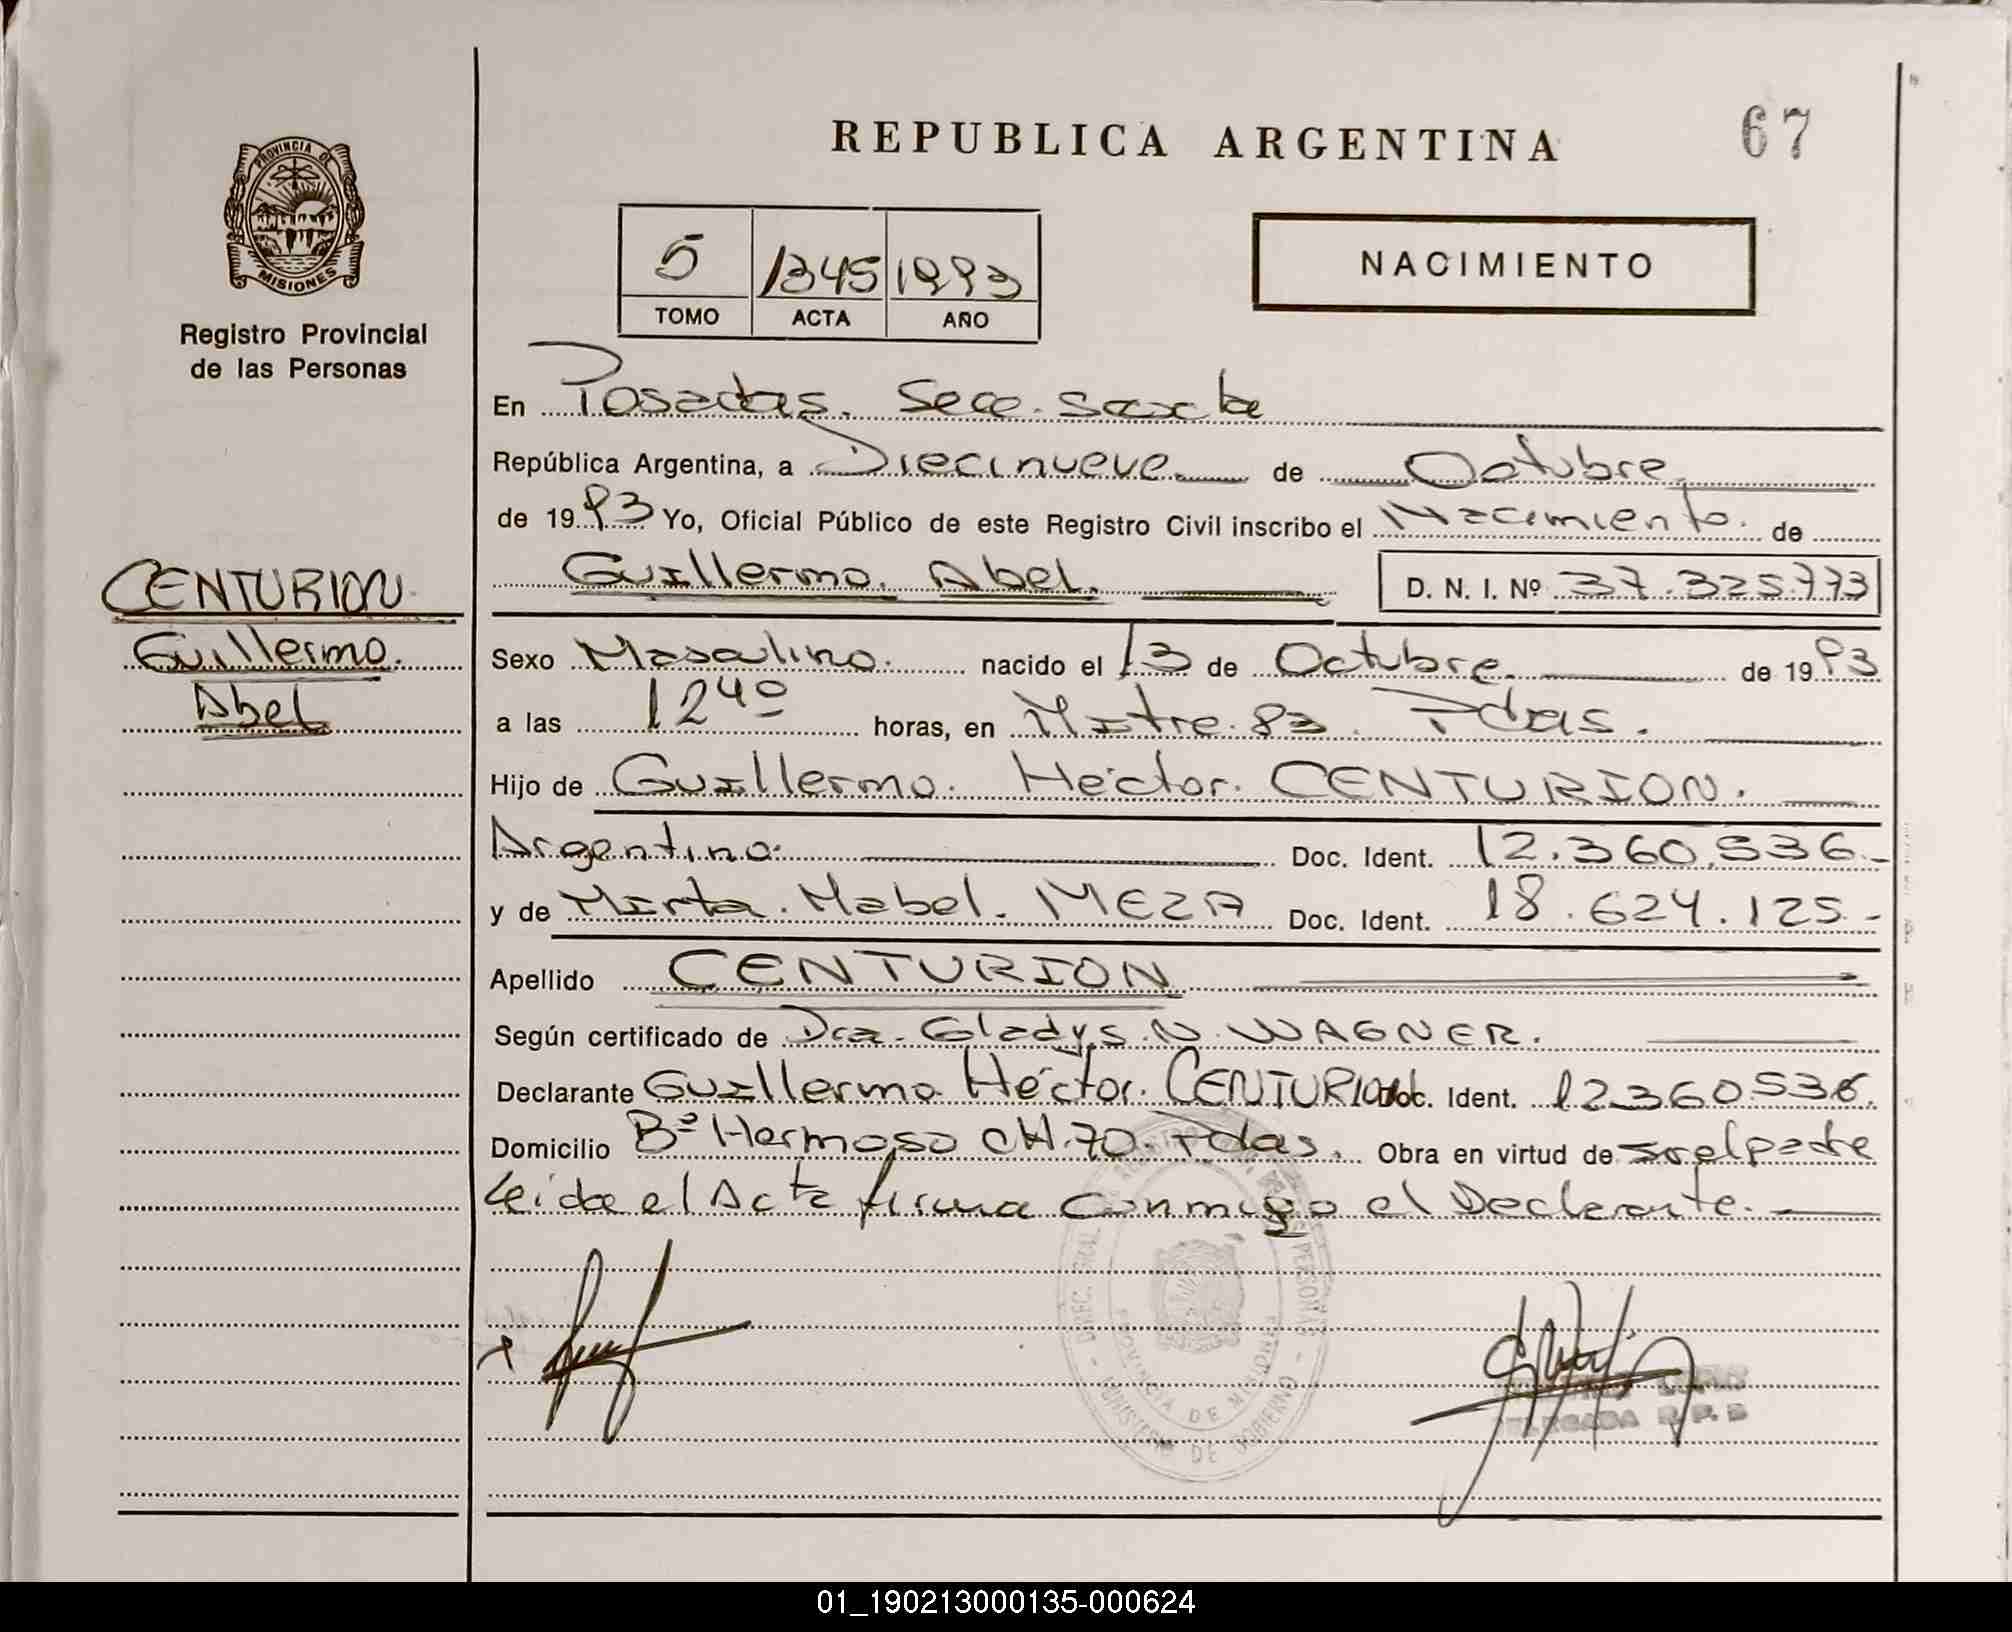 REPUBLICA ARGENTINA
67
PROVINCIA DE
MISIONES
Registro Provincial
de las Personas
5 1345 1993
TOMO ACTA AÑO
NACIMIENTO
En Posadas. Secc. sexta
República Argentina, a Diecinueve de Octubre
de 1993 Yo, Oficial Público de este Registro Civil inscribo el Nacimiento. de
Guillermo. Abel. D. N. I. Nº 37.325.773
CENTURION
Guillermo.
Abel
Sexo Masculino. nacido el 13 de Octubre. de 1993
a las 1240 horas, en Mitre. 83. Pdas.
Hijo de Guillermo. Héctor. CENTURION.
Argentino. Doc. Ident. 12.360.536.-
y de Mirta. Mabel. MEZA Doc. Ident. 18.624.125.-
Apellido CENTURION
Según certificado de Dra. Gladys. N. WAGNER.
Declarante Guillermo Héctor. CENTURION Doc. Ident. 12360536.
Domicilio Bº Hermoso CH.70. Pdas. Obra en virtud de ser el padre
Leída el Acta firma conmigo el Declarante.
DIREC. GRAL.
PERSONAS
PROVINCIA DE MISIONES
MINISTERIO DE GOBIERNO
DELEGADA R.P.
01_190213000135-000624